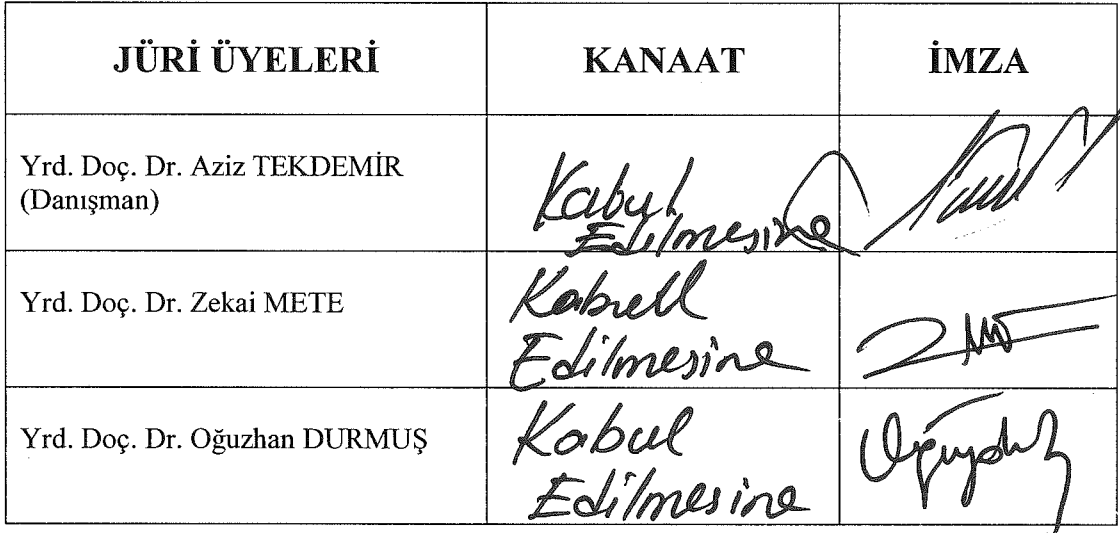 JÜRİ ÜYELERİ KANAAT İMZA
Yrd. Doç. Dr. Aziz TEKDEMİR
(Danışman)
Kabul
Edilmesine
Yrd. Doç. Dr. Zekai METE
Kabull
Edilmesine
Yrd. Doç. Dr. Oğuzhan DURMUŞ
Kabul
Edilmesine